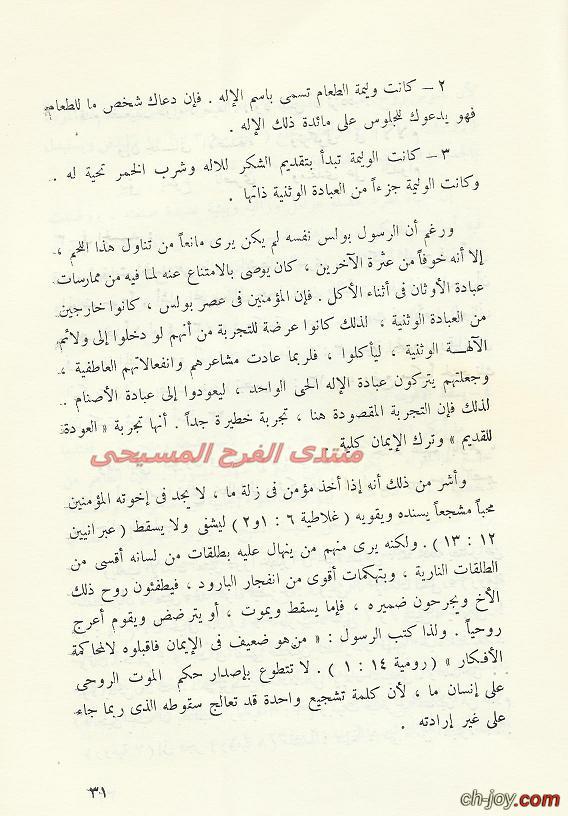 ٢ – كانت وليمة الطعام تسمى باسم الإله . فإن دعاك شخص ما للطعام
فهو يدعوك للجلوس على مائدة ذلك الإله .
٣ – كانت الوليمة تبدأ بتقديم الشكر للاله وشرب الخمر تحية له .
وكانت الوليمة جزءاً من العبادة الوثنية ذاتها .
ورغم أن الرسول بولس نفسه لم يكن يرى مانعاً من تناول هذا اللحم ،
إلا أنه خوفاً من عثرة الآخرين ، كان يوصى بالامتناع عنه لما فيه من ممارسات
عبادة الأوثان فى أثناء الأكل . فإن المؤمنين فى عصر بولس ، كانوا خارجين
من العبادة الوثنية ، لذلك كانوا عرضة للتجربة من أنهم لو دخلوا إلى ولائم
الآلهـــة الوثنية ، ليأكلوا ، فلربما عادت مشاعرهم وانفعالاتهم العاطفية ،
وجعلتهم يتركون عبادة الإله الحى الواحد ، ليعودوا إلى عبادة الأصنام .
لذلك فإن التجربة المقصودة هنا ، تجربة خطيرة جداً . أنها تجربة « العودة
للقديم » وترك الإيمان كلية .
منتدى الفرح المسيحى
وأشر من ذلك أنه إذا أخذ مؤمن فى زلة ما ، لا يجد فى إخوته المؤمنين
محباً مشجعاً يسنده ويقويه ( غلاطية ٦ : ١و٢ ) ليشفى ولا يسقط ( عبرانيين
١٢ : ١٣ ) . ولكنه يرى منهم من ينهال عليه بطلقات من لسانه أقسى من
الطلقات النارية ، وبتهكمات أقوى من انفجار البارود ، فيطفئون روح ذلك
الأخ ويجرحون ضميره ، فإما يسقط ويموت ، أو يترضض ويقوم أعرج
روحياً . ولذا كتب الرسول : « من هو ضعيف فى الإيمان فاقبلوه لالمحاكمة
الأفكار » ( رومية ١٤ : ١ ) . لا تتطوع بإصدار حكم الموت الروحى
على إنسان ما ، لأن كلمة تشجيع واحدة قد تعالج سقوطه الذى ربما جاء
على غير إرادته .
٣١
ch-joy.com